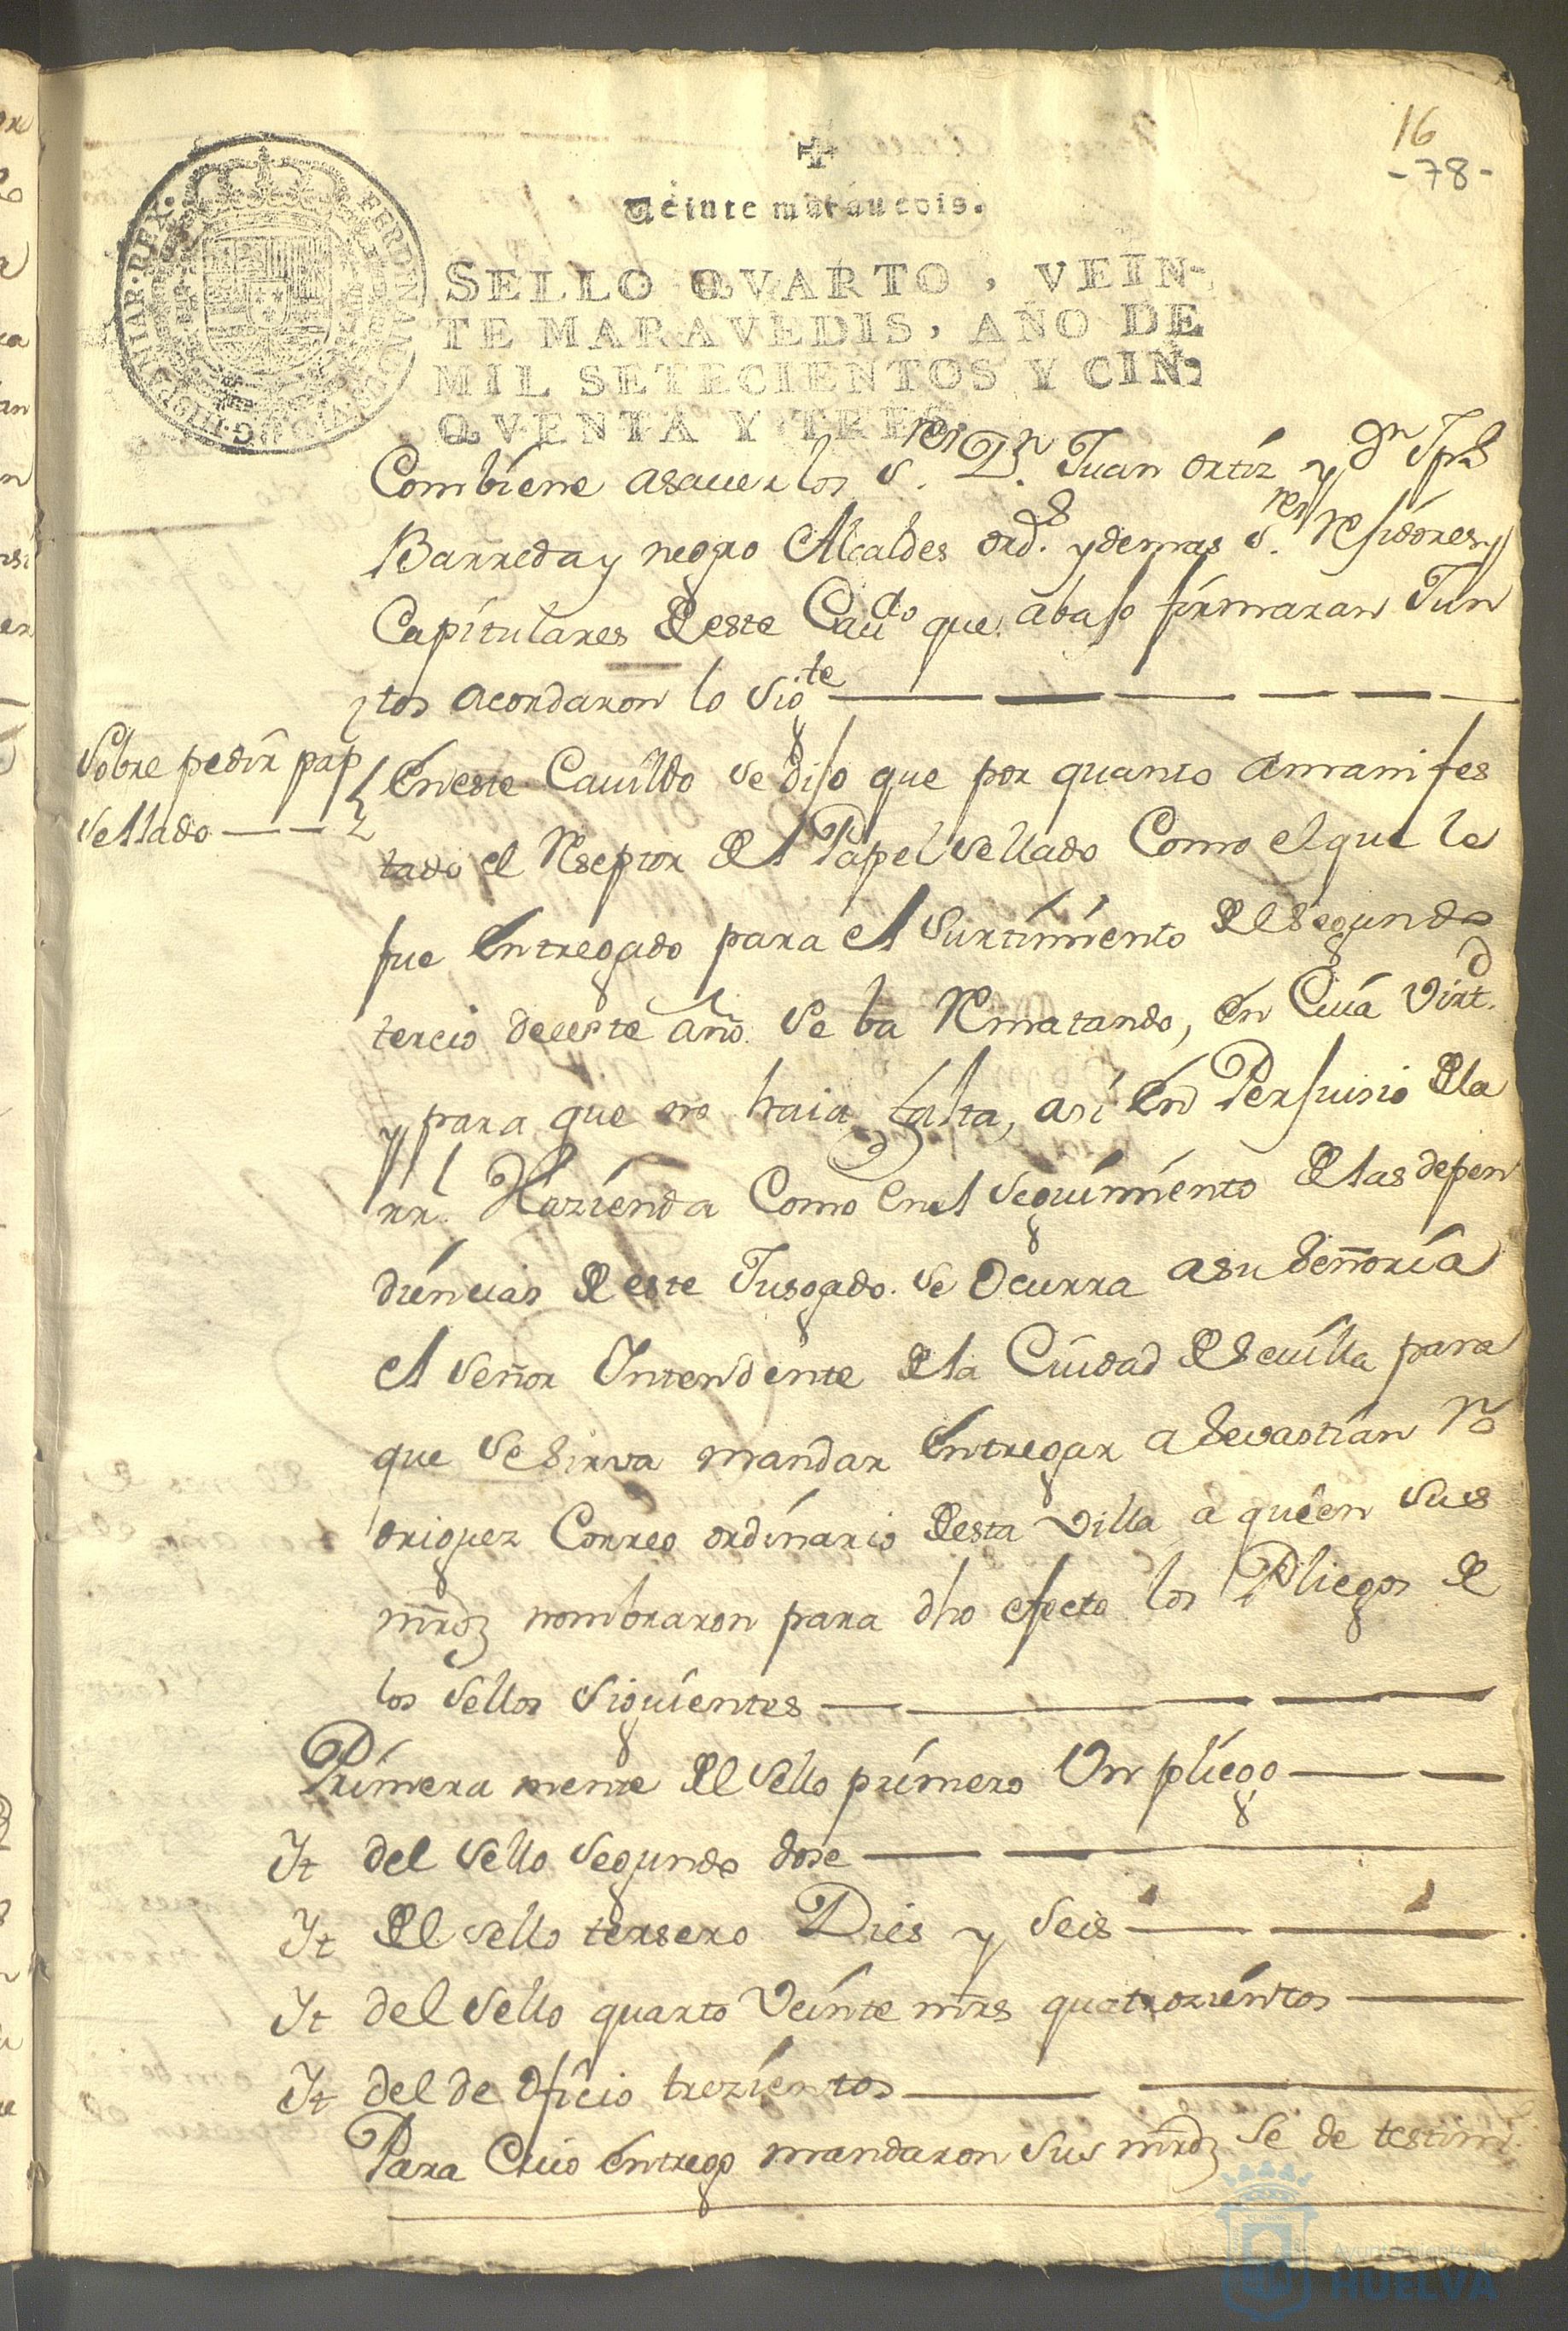 16
-78-
Veinte marauedis.
SELLO QVARTO, VEIN-
TE MARAVEDIS, AÑO DE
MIL SETECIENTOS Y CIN-
QVENTA Y TRES
FERDINANDUS VI D G HISPANIAR REX
Combiene asauer los S.res D.n Juan ortiz y D.n
Barreda y negro Alcaldes ord.s y demas S.res Rexidores y
Capitulares de este Cau.do que abaxo firmaran Jun
tos acordaron lo sig.te
Sobre pedir pap
sellado
En este Cauildo se dijo que por quanto a manifes
tado el Reseptor del Papel sellado Como el que le
fue Entregado para el surtimiento del segundo
tercio de este año se ba Rematando, en Cuia virt.d
y para que no haia falta, asi En Perjuisio de la
rr.l Hazienda Como en el seguimiento de las depen
diencias de este Jusgado se Ocurra a su señoria
el señor Yntendente de la Ciudad de seuilla para
que se sirva mandar Entregar a sevastian Ro
driguez Correo ordinario de esta Villa a quien sus
mrds nombraron para dho efecto los Pliegos de
los sellos siguientes
Primera mente del sello primero Un pliego
Yt del sello segundo dose
Yt del sello tersero Dies y seis
Yt del sello quarto Veinte mrs quatrozientos
Yt del de Oficio trezientos
Para Cuio entrego mandaron sus mrds se de testimo
Ayuntamiento de
HUELVA